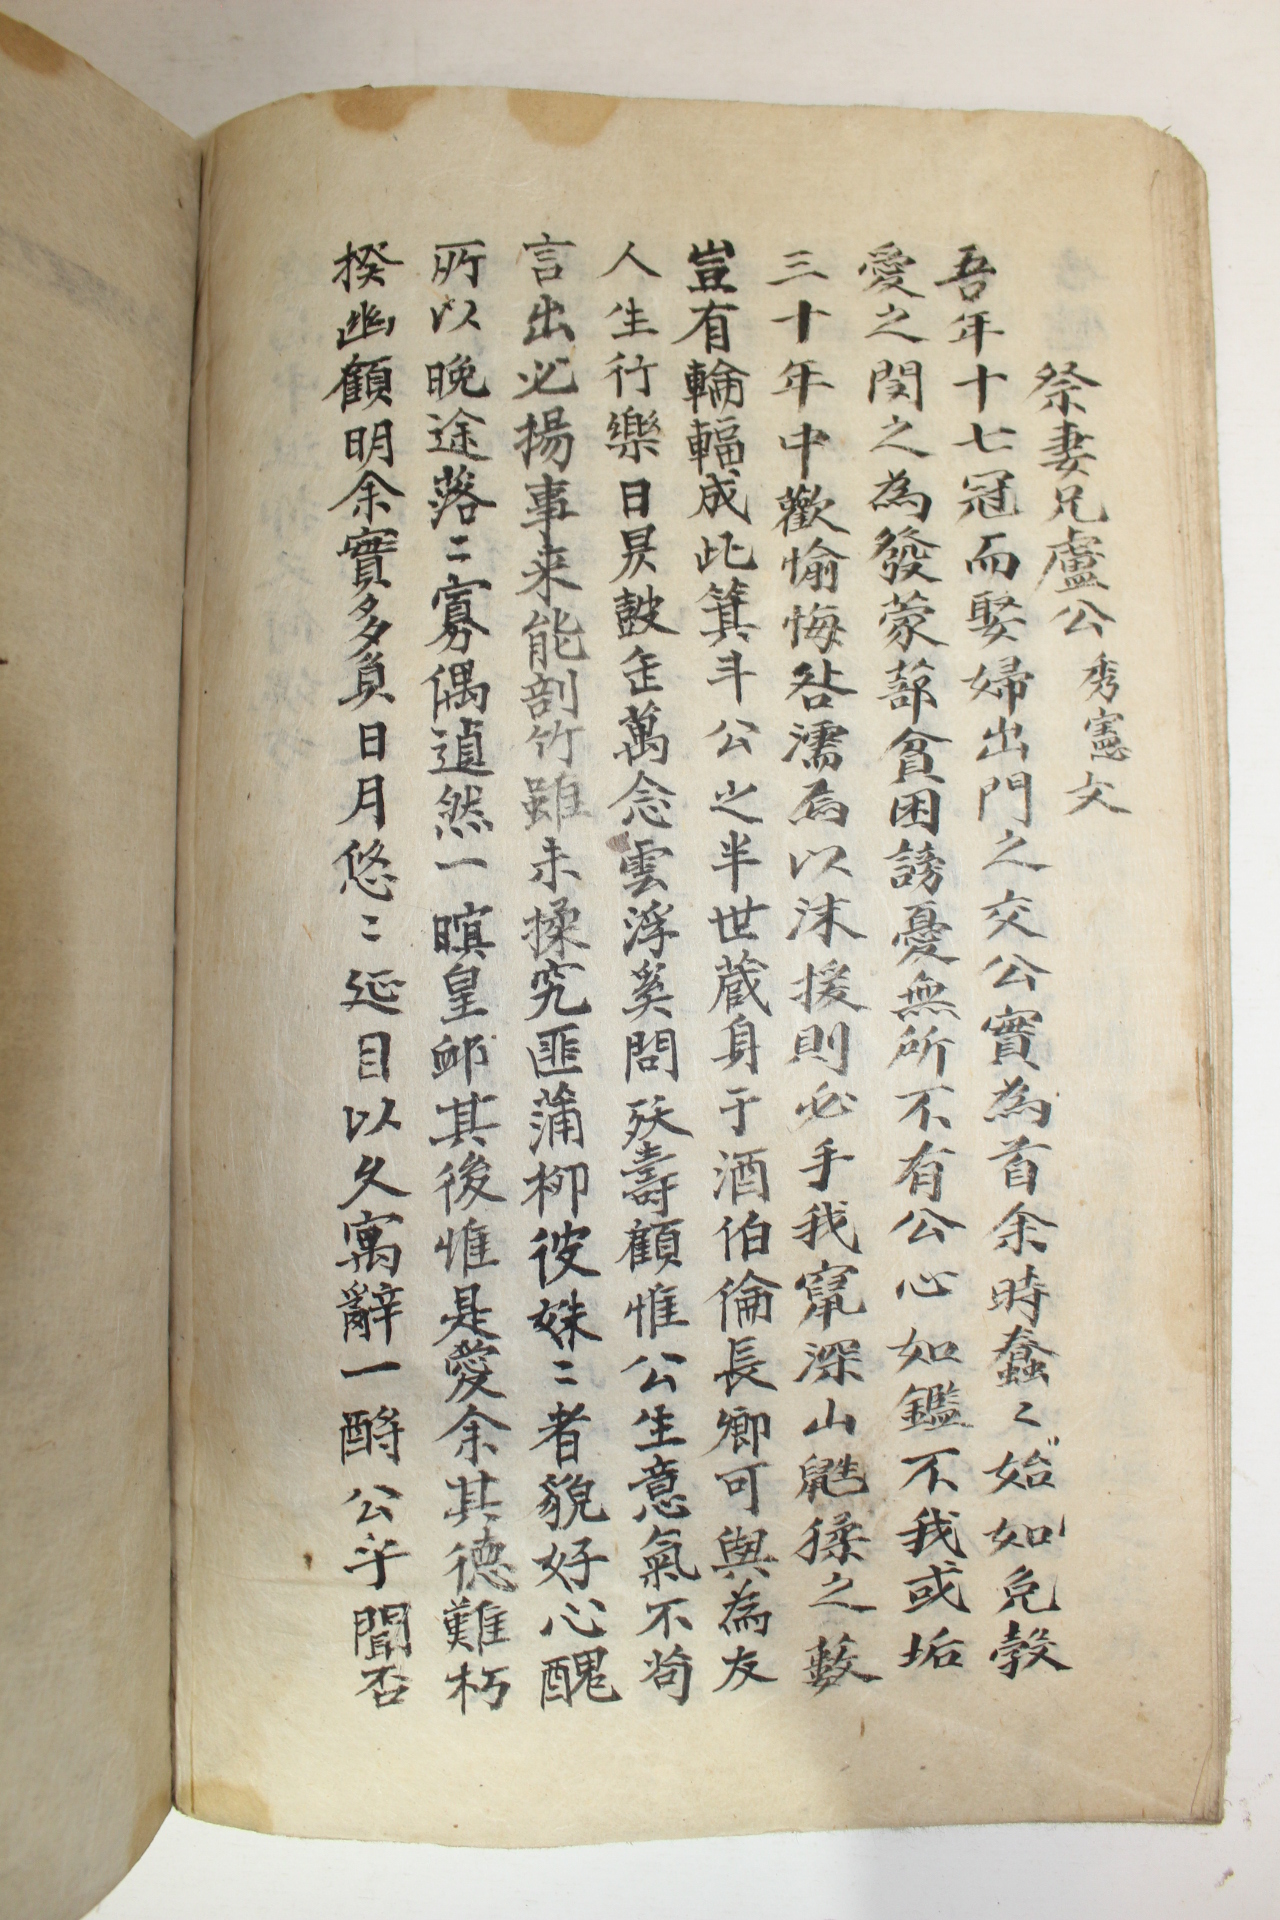 祭妻兄盧公秀憲文
吾年十七冠而娶婦出門之交公實為首余時蠢〻始如免㝅
愛之閔之為發蒙蔀貧困謗憂無所不有公心如鑑不我或垢
三十年中歡愉悔咎濡為以沫援則必手我竄深山鼪猱之藪
豈有輪輻成此箕斗公之半世蔵身于酒伯倫長卿可與為友
人生行樂日昃皷缶萬念雲浮奚問殀壽顧惟公生意氣不苟
言出必揚事来能剖竹雖未揉究匪蒲柳彼姝〻者貌好心醜
所以晩途落〻寡偶逌然一瞑皇卹其後惟是愛余其德難朽
揆幽顧明余實多負日月悠〻延目以久寓辭一酹公乎聞否